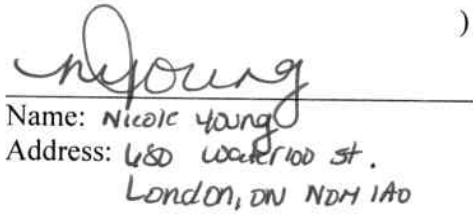 )
nyoung
Name: Nicole Young
Address: 480 Waterloo St.
London, ON N0M 1A0